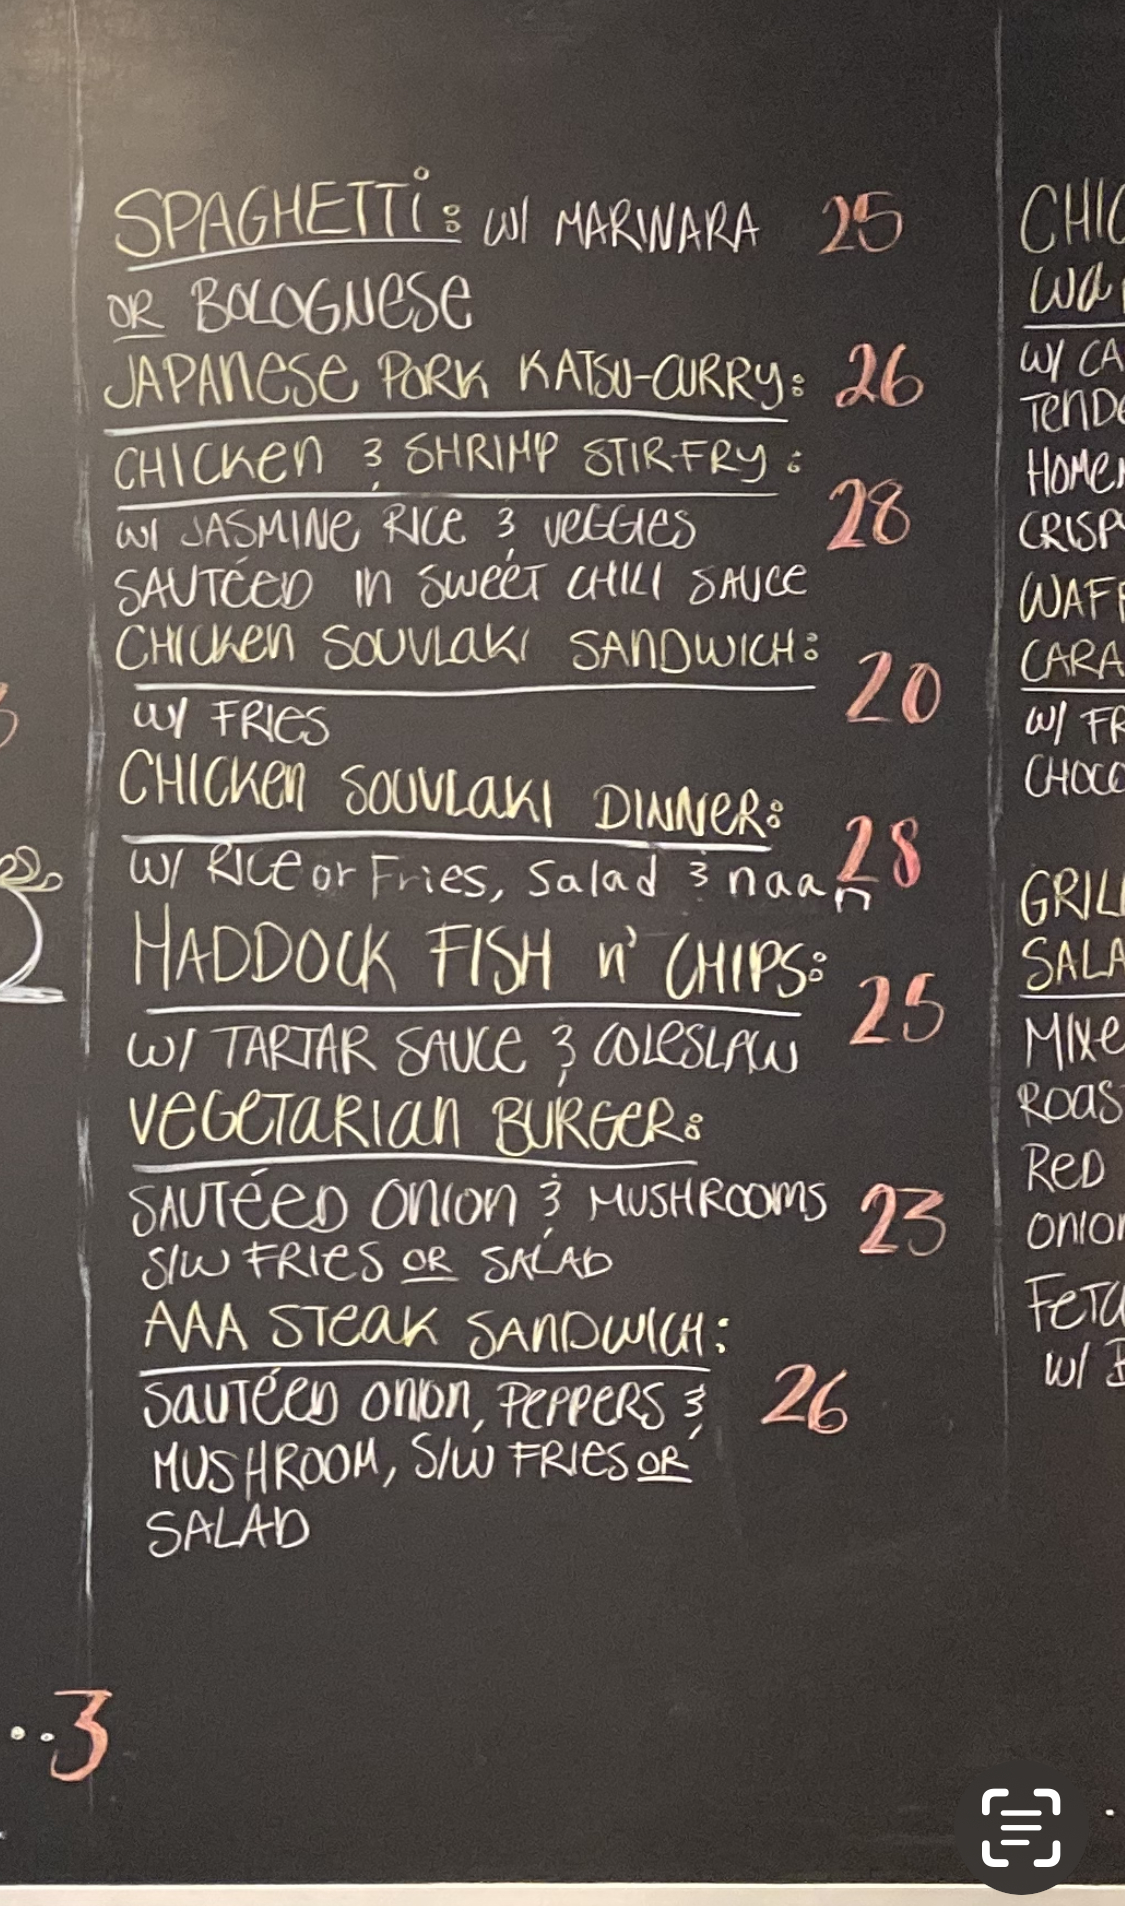 SPAGHETTi: W/ MARINARA 25
OR BOLOGNESE
JAPANESE PORK KATSU-CURRY: 26
CHICKEN & SHRIMP STIR-FRY:
28
W/ JASMINE RICE & VEGGIES
SAUTÉED IN SWEET CHILI SAUCE
CHICKEN SOUVLAKI SANDWICH:
20
W/ FRIES
CHICKEN SOUVLAKI DINNER:
28
W/ RICE or Fries, Salad & naan
HADDOCK FISH n' CHIPS:
25
W/ TARTAR SAUCE & COLESLAW
VEGETARIAN BURGER:
SAUTÉED ONION & MUSHROOMS 23
S/W FRIES OR SALAD
AAA STEAK SANDWICH:
SAUTÉED ONION, PEPPERS & 26
MUSHROOM, S/W FRIES OR
SALAD
..3
CHIC
WA
W/ CA
TENDE
HOME
CRISP
WAF
CARA
W/ FR
CHOCO
GRIL
SALA
MIXE
ROAS
RED
ONIO
FETA
W/